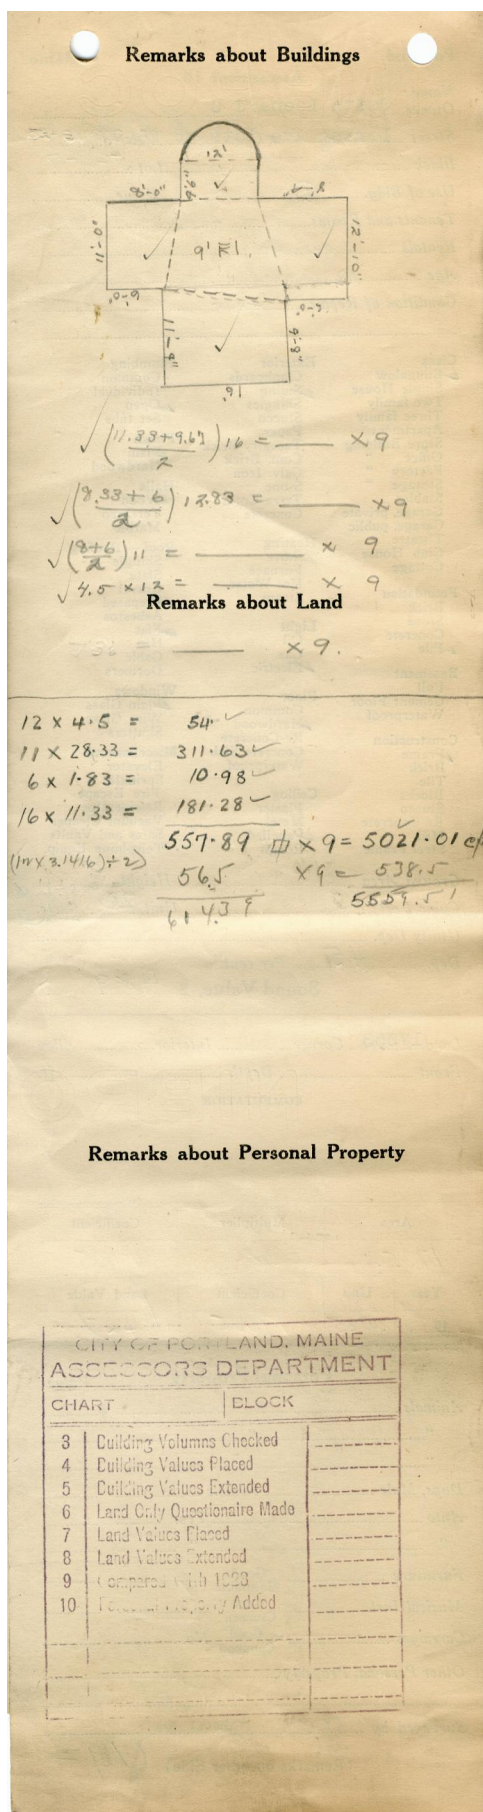 Remarks about Buildings
12'
8'-0"
11'-0"
9' Fl.
12'-10"
6'-0"
6'-0"
11'-4"
9'-8"
16'
(11.33+9.67 / 2) 16 = ——— × 9
(8.33 + 6 / 2) 12.83 = ——— × 9
(8+6 / 2) 11 = ——— × 9
4.5 × 12 = ——— × 9
Remarks about Land
= ——— × 9.
12 × 4.5 = 54.
11 × 28.33 = 311.63
6 × 1.83 = 10.98
16 × 11.33 = 181.28
557.89 × 9 = 5021.01 cf
56.5 × 9 = 538.5
614.39 5559.51
Remarks about Personal Property
CITY OF PORTLAND, MAINE
ASSESSORS DEPARTMENT
CHART BLOCK
3 Building Volumns Checked
4 Building Values Placed
5 Building Values Extended
6 Land Only Questionaire Made
7 Land Values Placed
8 Land Values Extended
9 Compared With 1923
10 Personal Property Added